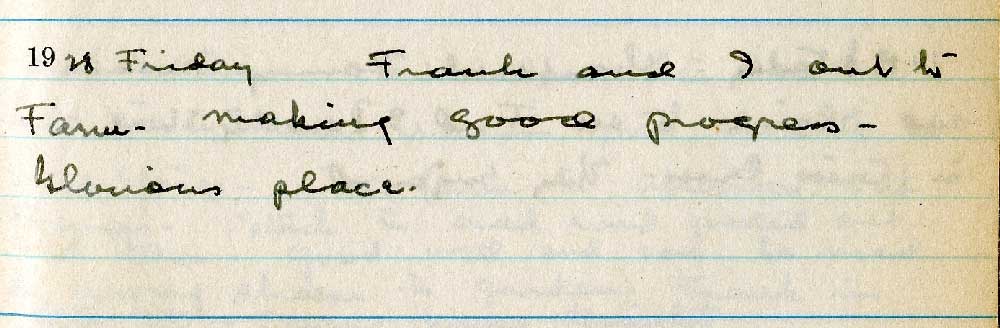 1928 Friday Frank and I out to
Farm - making good progress -
Glorious place.